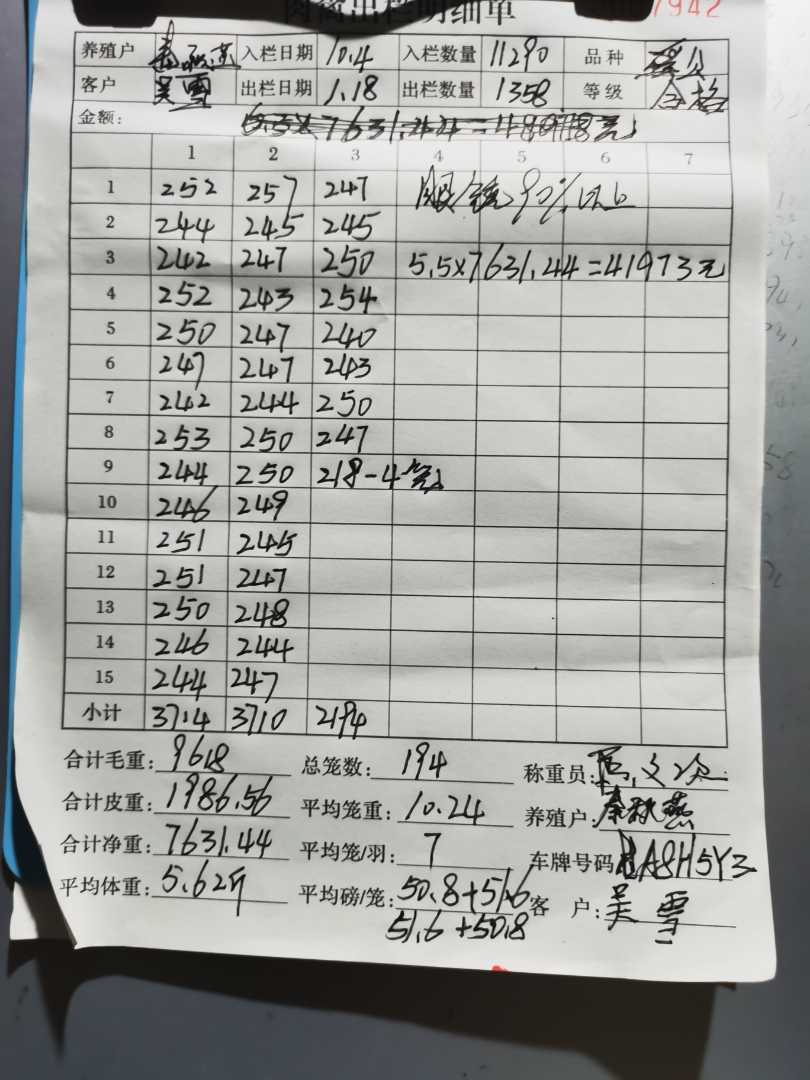 肉禽出栏明细单 7942
养殖户 入栏日期 10.4 入栏数量 11290 品种
客户 吴雪 出栏日期 1.18 出栏数量 1358 等级 合格
金额: 6.5×7631.44=
1 2 3 4 5 6 7
1 252 257 247 90%以上
2 244 245 245
3 242 247 250 5.5×7631.44=41973元
4 252 243 254
5 250 247 240
6 247 247 243
7 242 244 250
8 253 250 247
9 244 250 218-4笼
10 246 249
11 251 245
12 251 247
13 250 248
14 246 244
15 244 247
小计 3714 3710 2194
合计毛重: 9618 总笼数: 194 称重员:
合计皮重: 1986.56 平均笼重: 10.24 养殖户: 秦秋燕
合计净重: 7631.44 平均笼/羽: 7 车牌号码 A8H5Y3
平均体重: 5.62斤 平均磅/笼: 50.8+51.6 客 户: 吴雪
51.6+50.8